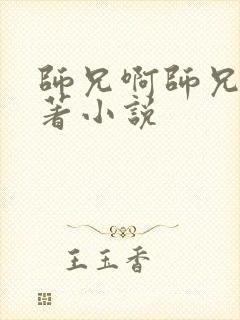 師兄啊師兄
著小說
王玉香